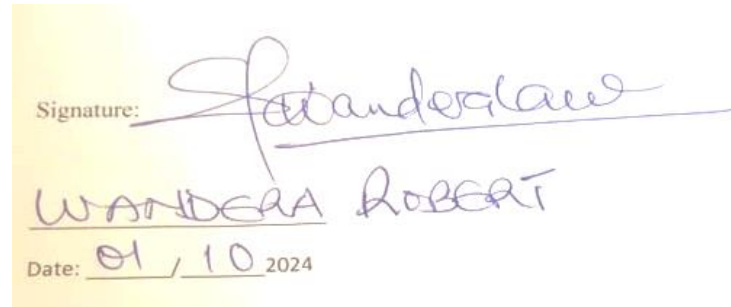 Signature:
WANDERA ROBERT
Date: 01/10 2024